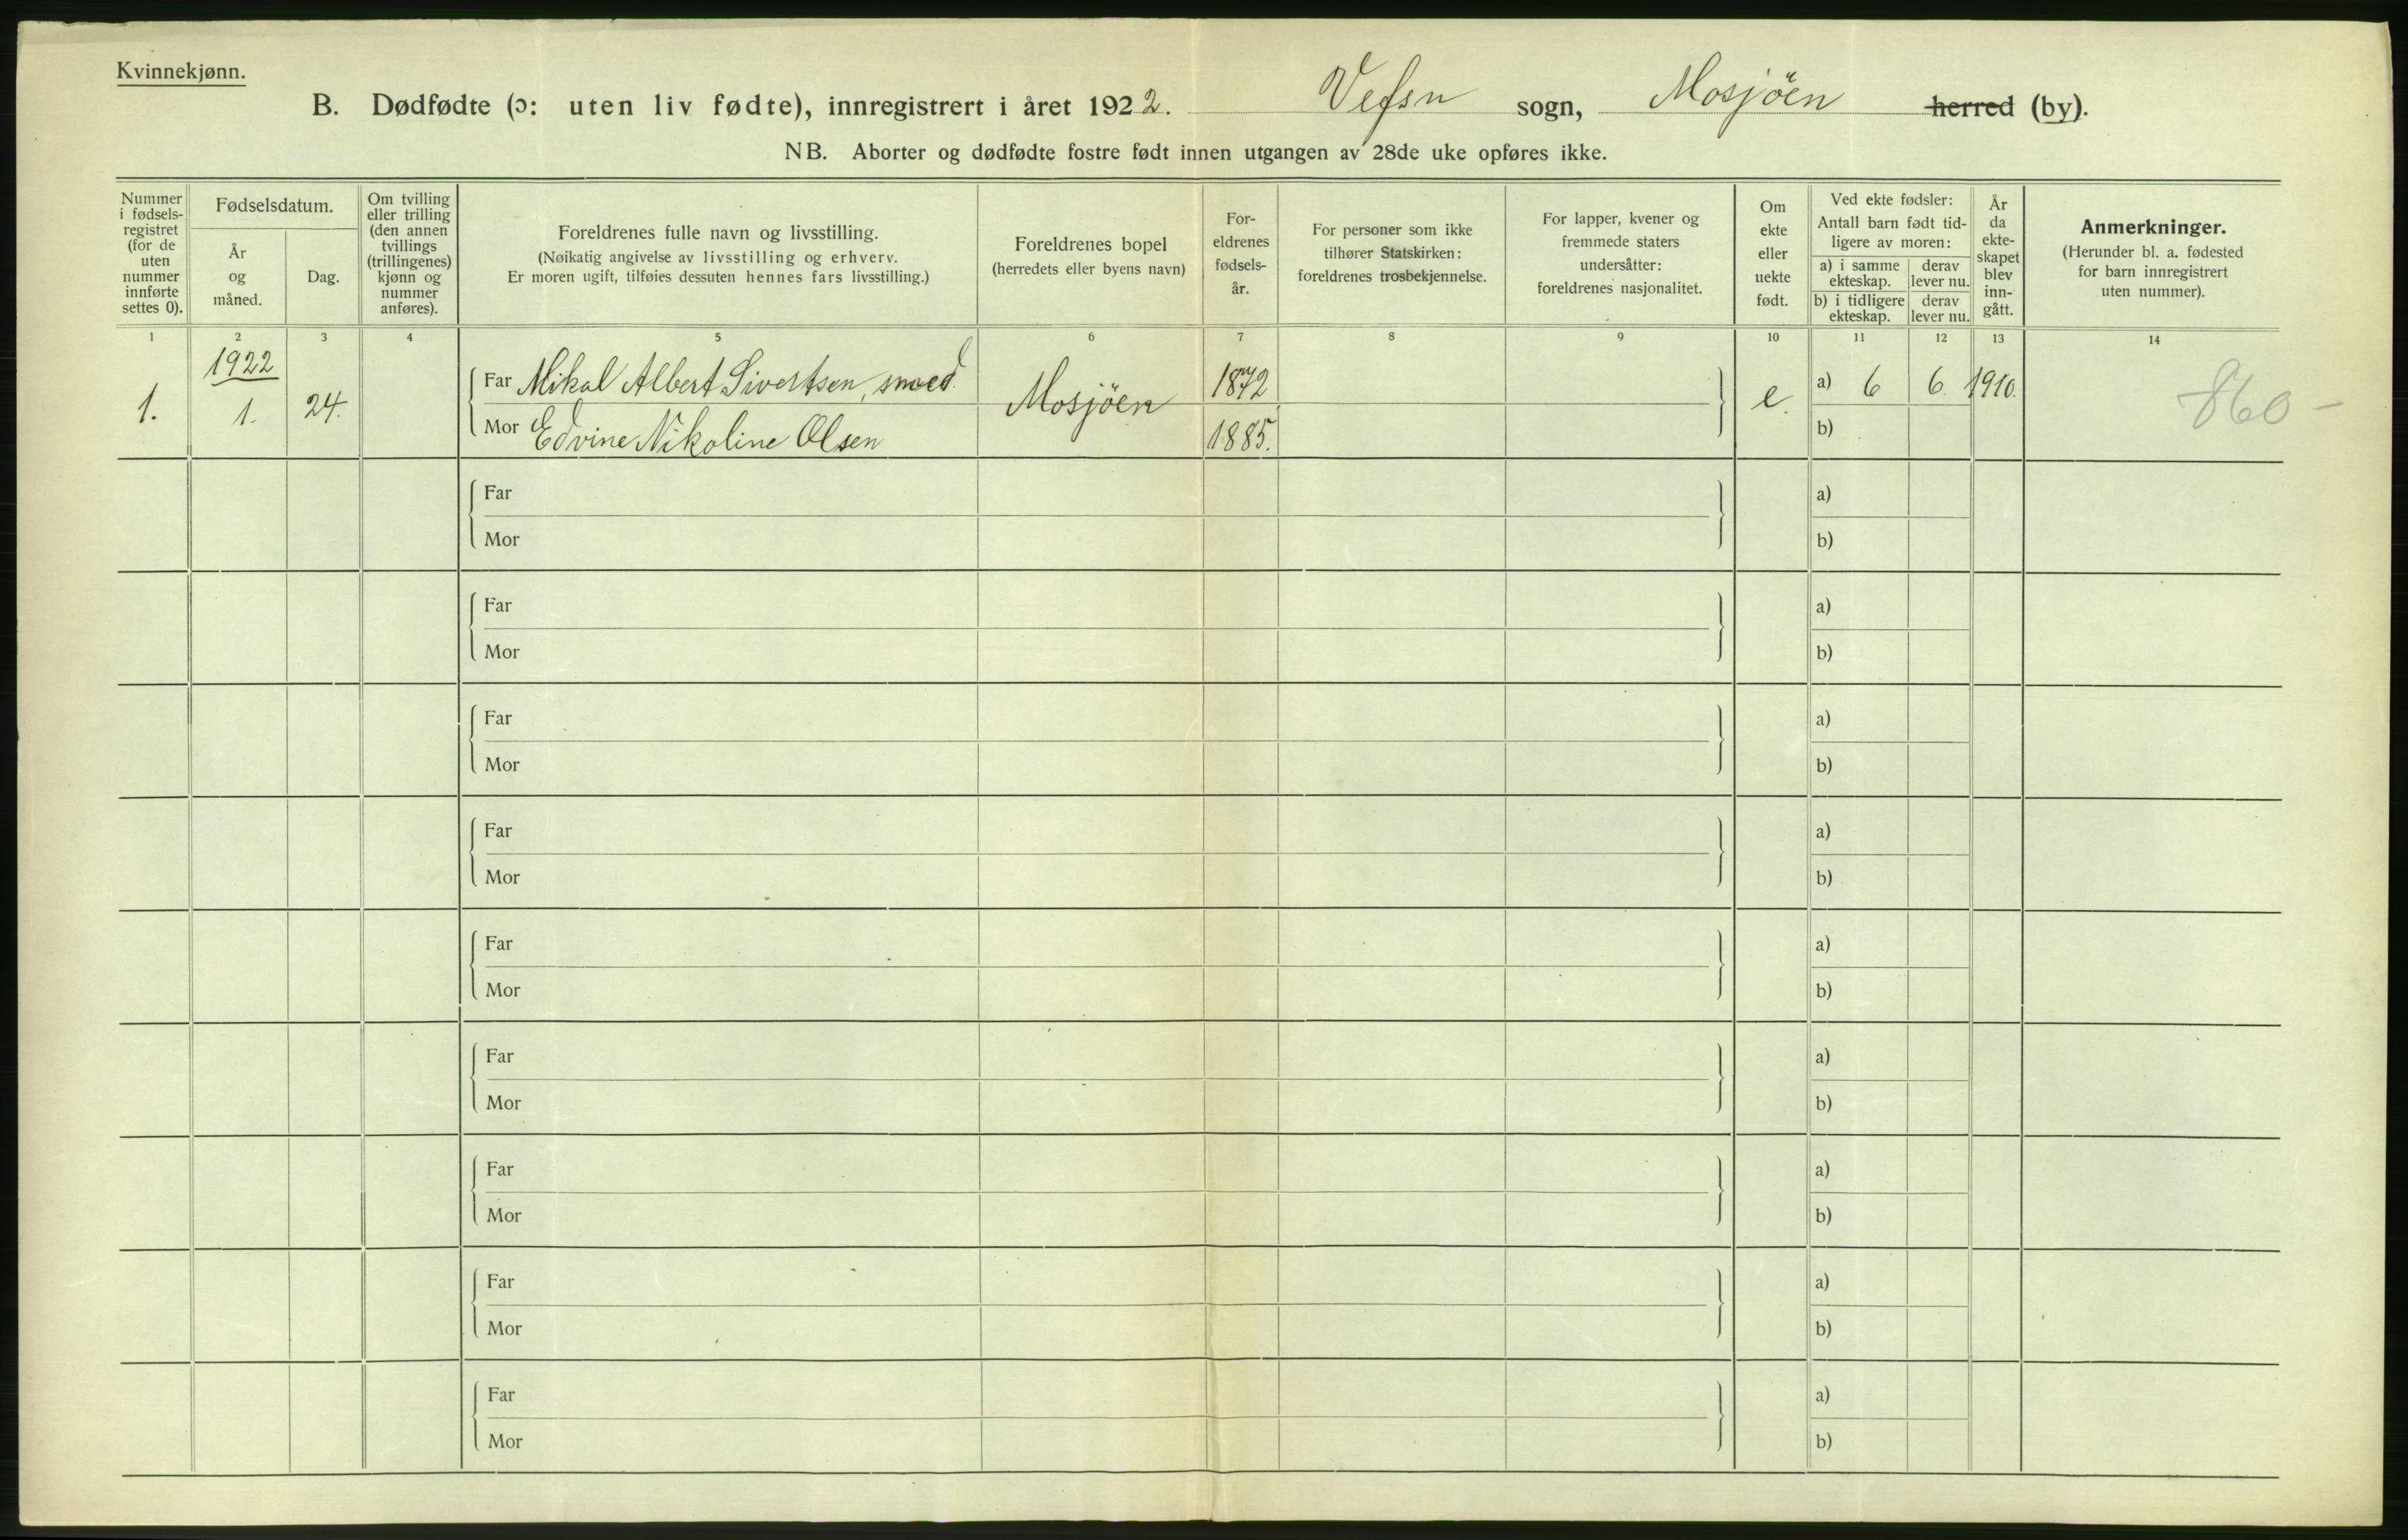 Kvinnekjønn.
B. Dødfødte (ɔ: uten liv fødte), innregistrert i året 1922. Vefsn sogn, Mosjöen herred (by).
NB. Aborter og dødfødte fostre født innen utgangen av 28de uke opføres ikke.
Nummer
i fødsels-
registret
(for de
uten
nummer
innførte
settes 0).
Fødselsdatum.
År
og
måned.
Dag.
Om tvilling
eller trilling
(den annen
tvillings
(trillingenes)
kjønn og
nummer
anføres).
Foreldrenes fulle navn og livsstilling.
(Nøikatig angivelse av livsstilling og erhverv.
Er moren ugift, tilføies dessuten hennes fars livsstilling.)
Foreldrenes bopel
(herredets eller byens navn)
For-
eldrenes
fødsels-
år.
For personer som ikke
tilhører Statskirken:
foreldrenes trosbekjennelse.
For lapper, kvener og
fremmede staters
undersåtter:
foreldrenes nasjonalitet.
Om
ekte
eller
uekte
født.
Ved ekte fødsler:
Antall barn født tid-
ligere av moren:
a) i samme
ekteskap.
derav
lever nu.
b) i tidligere
ekteskap.
derav
lever nu.
År
da
ekte-
skapet
blev
inn-
gått.
Anmerkninger.
(Herunder bl. a. fødested
for barn innregistrert
uten nummer).
1 2 3 4 5 6 7 8 9 10 11 12 13 14
1922
1. 1. 24.
Far Mikal Albert Sivertsen, smed
Mor Edvine Nikoline Olsen
Mosjöen
1872
1885.
e.
a) 6 6 1910.
b)
860 –
Far a)
Mor b)
Far a)
Mor b)
Far a)
Mor b)
Far a)
Mor b)
Far a)
Mor b)
Far a)
Mor b)
Far a)
Mor b)
Far a)
Mor b)
Far a)
Mor b)